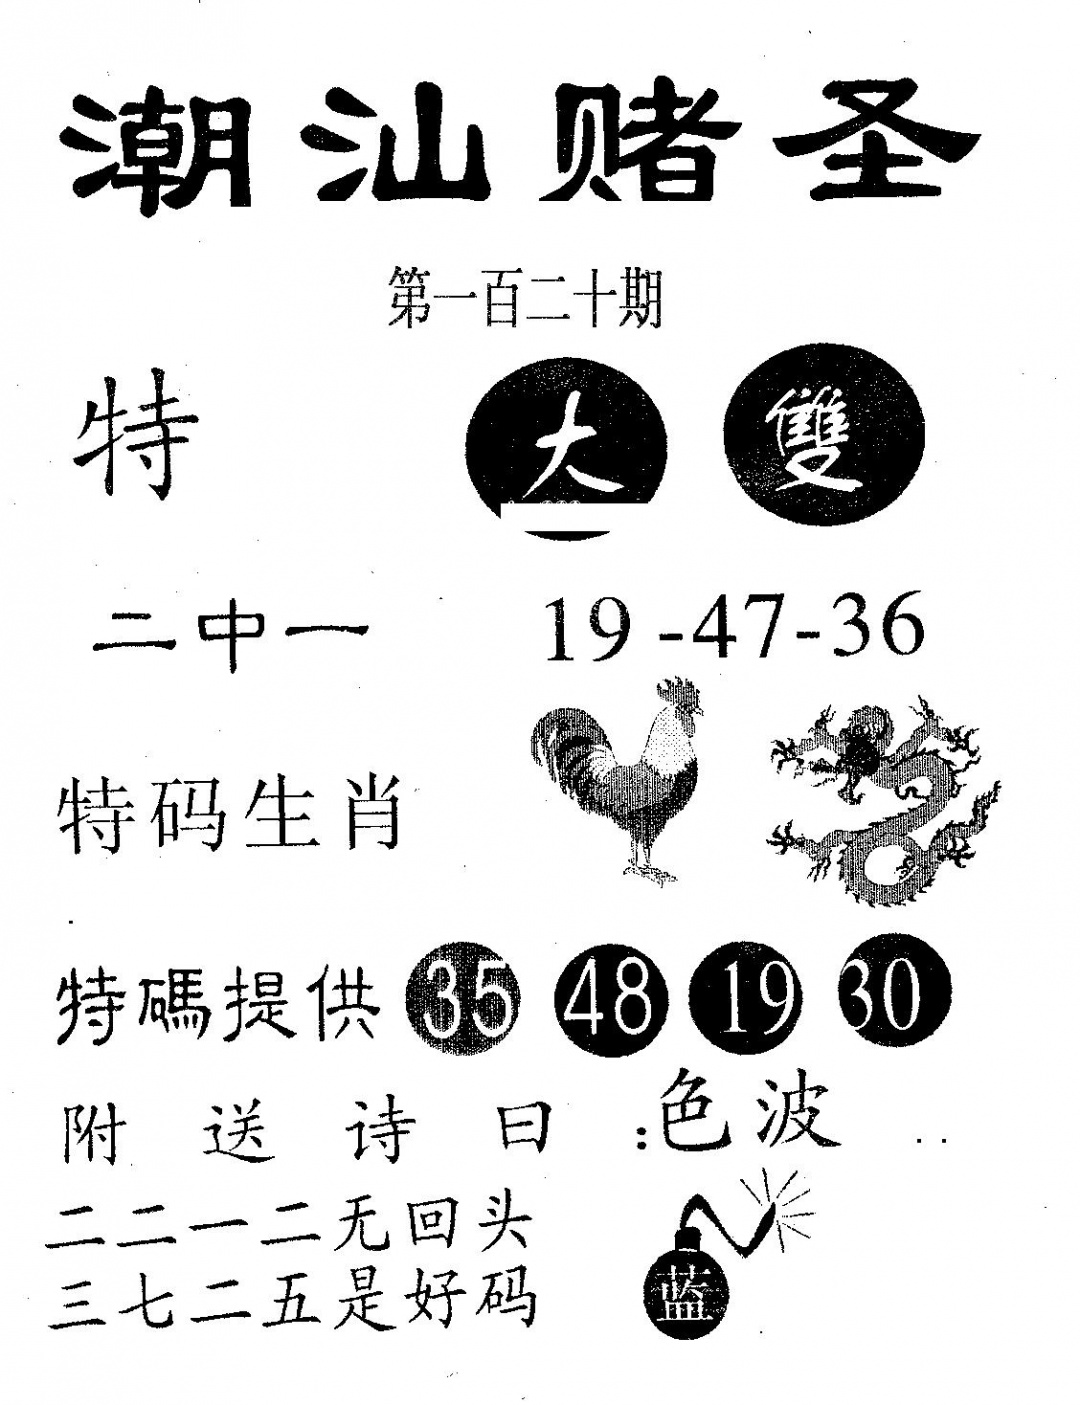 潮汕赌圣
第一百二十期
特 大 雙
二中一 19-47-36
特码生肖
特碼提供 35 48 19 30
附送诗曰:色波 ..
二二一二无回头
三七二五是好码
蓝